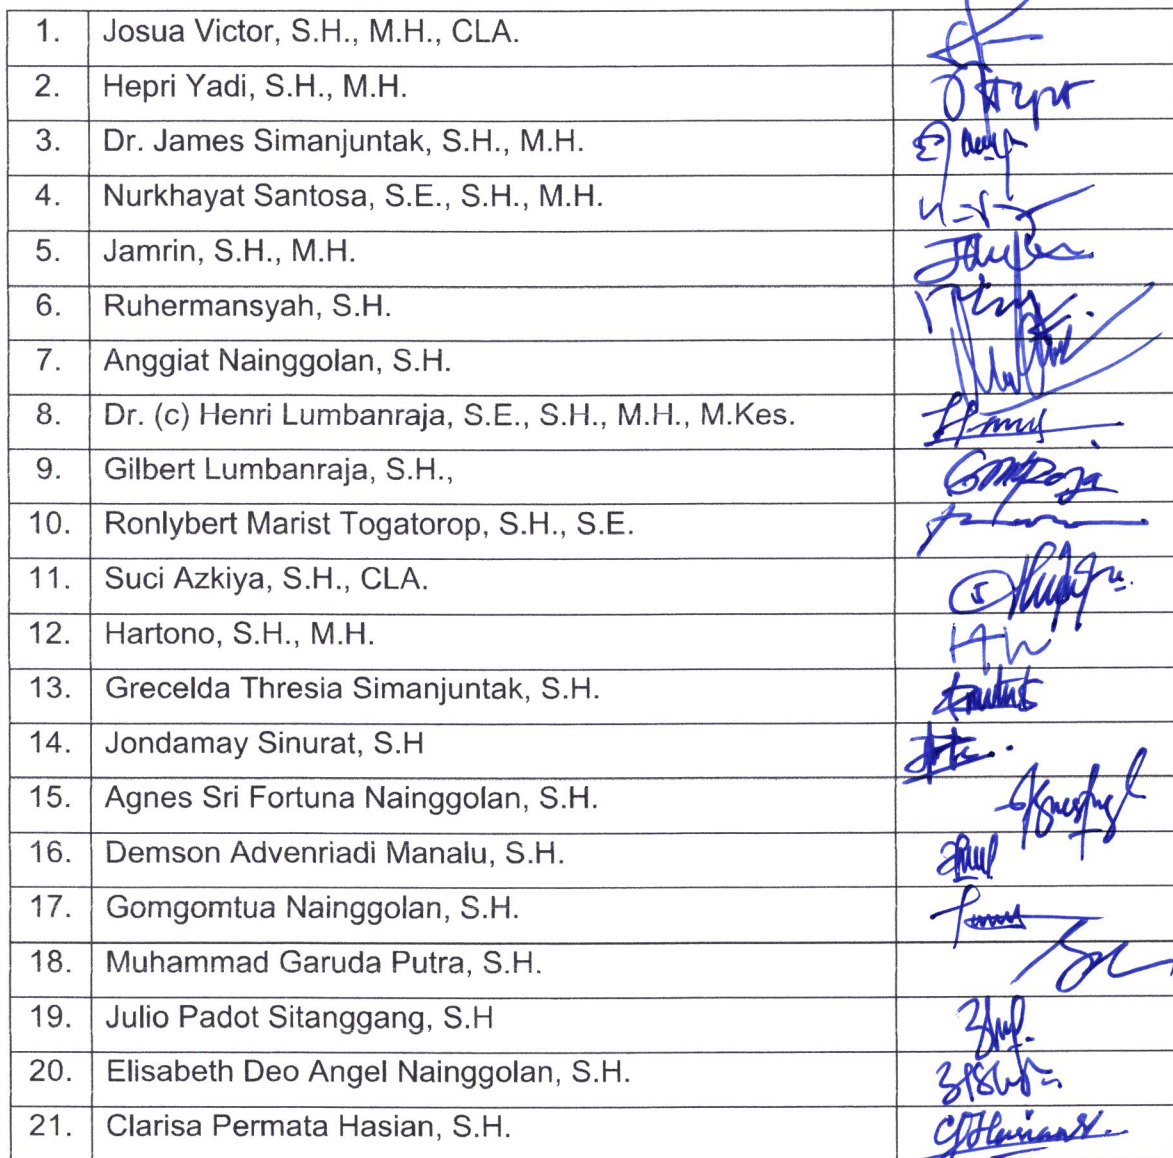 1. Josua Victor, S.H., M.H., CLA.
2. Hepri Yadi, S.H., M.H.
3. Dr. James Simanjuntak, S.H., M.H.
4. Nurkhayat Santosa, S.E., S.H., M.H.
5. Jamrin, S.H., M.H.
6. Ruhermansyah, S.H.
7. Anggiat Nainggolan, S.H.
8. Dr. (c) Henri Lumbanraja, S.E., S.H., M.H., M.Kes.
9. Gilbert Lumbanraja, S.H.,
10. Ronlybert Marist Togatorop, S.H., S.E.
11. Suci Azkiya, S.H., CLA.
12. Hartono, S.H., M.H.
13. Grecelda Thresia Simanjuntak, S.H.
14. Jondamay Sinurat, S.H
15. Agnes Sri Fortuna Nainggolan, S.H.
16. Demson Advenriadi Manalu, S.H.
17. Gomgomtua Nainggolan, S.H.
18. Muhammad Garuda Putra, S.H.
19. Julio Padot Sitanggang, S.H
20. Elisabeth Deo Angel Nainggolan, S.H.
21. Clarisa Permata Hasian, S.H.